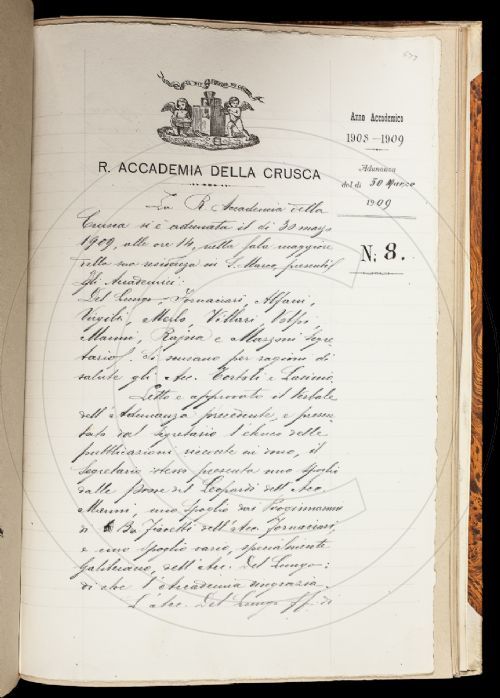 R. ACCADEMIA DELLA CRUSCA
Anno Accademico
1908-1909
Adunanza
del dì 30 Marzo
1909
N. 8.
La R. Accademia della
Crusca si è adunata il dì 30 marzo
1909, alle ore 14, nella sala maggiore
della sua residenza in S. Marco, presenti
gli Accademici:
Del Lungo, Fornaciari, Alfani,
Virgili, Merlo, Villari, Volpi,
Mazzoni Segre-
tario. Si scusano per ragioni di
salute gli Acc. Tortoli e
Letto e approvato il Verbale
dell'Adunanza precedente, e presen-
tato dal Segretario l'elenco delle
pubblicazioni ricevute in dono, il
Segretario stesso presenta uno spoglio
dalle prose del Leopardi dell'Acc.
uno spoglio
di dell'Acc. Fornaciari
e uno spoglio vario, specialmente
Galileiano, dell'Acc. Del Lungo:
di che l'Accademia ringrazia.
L'Acc. Del Lungo